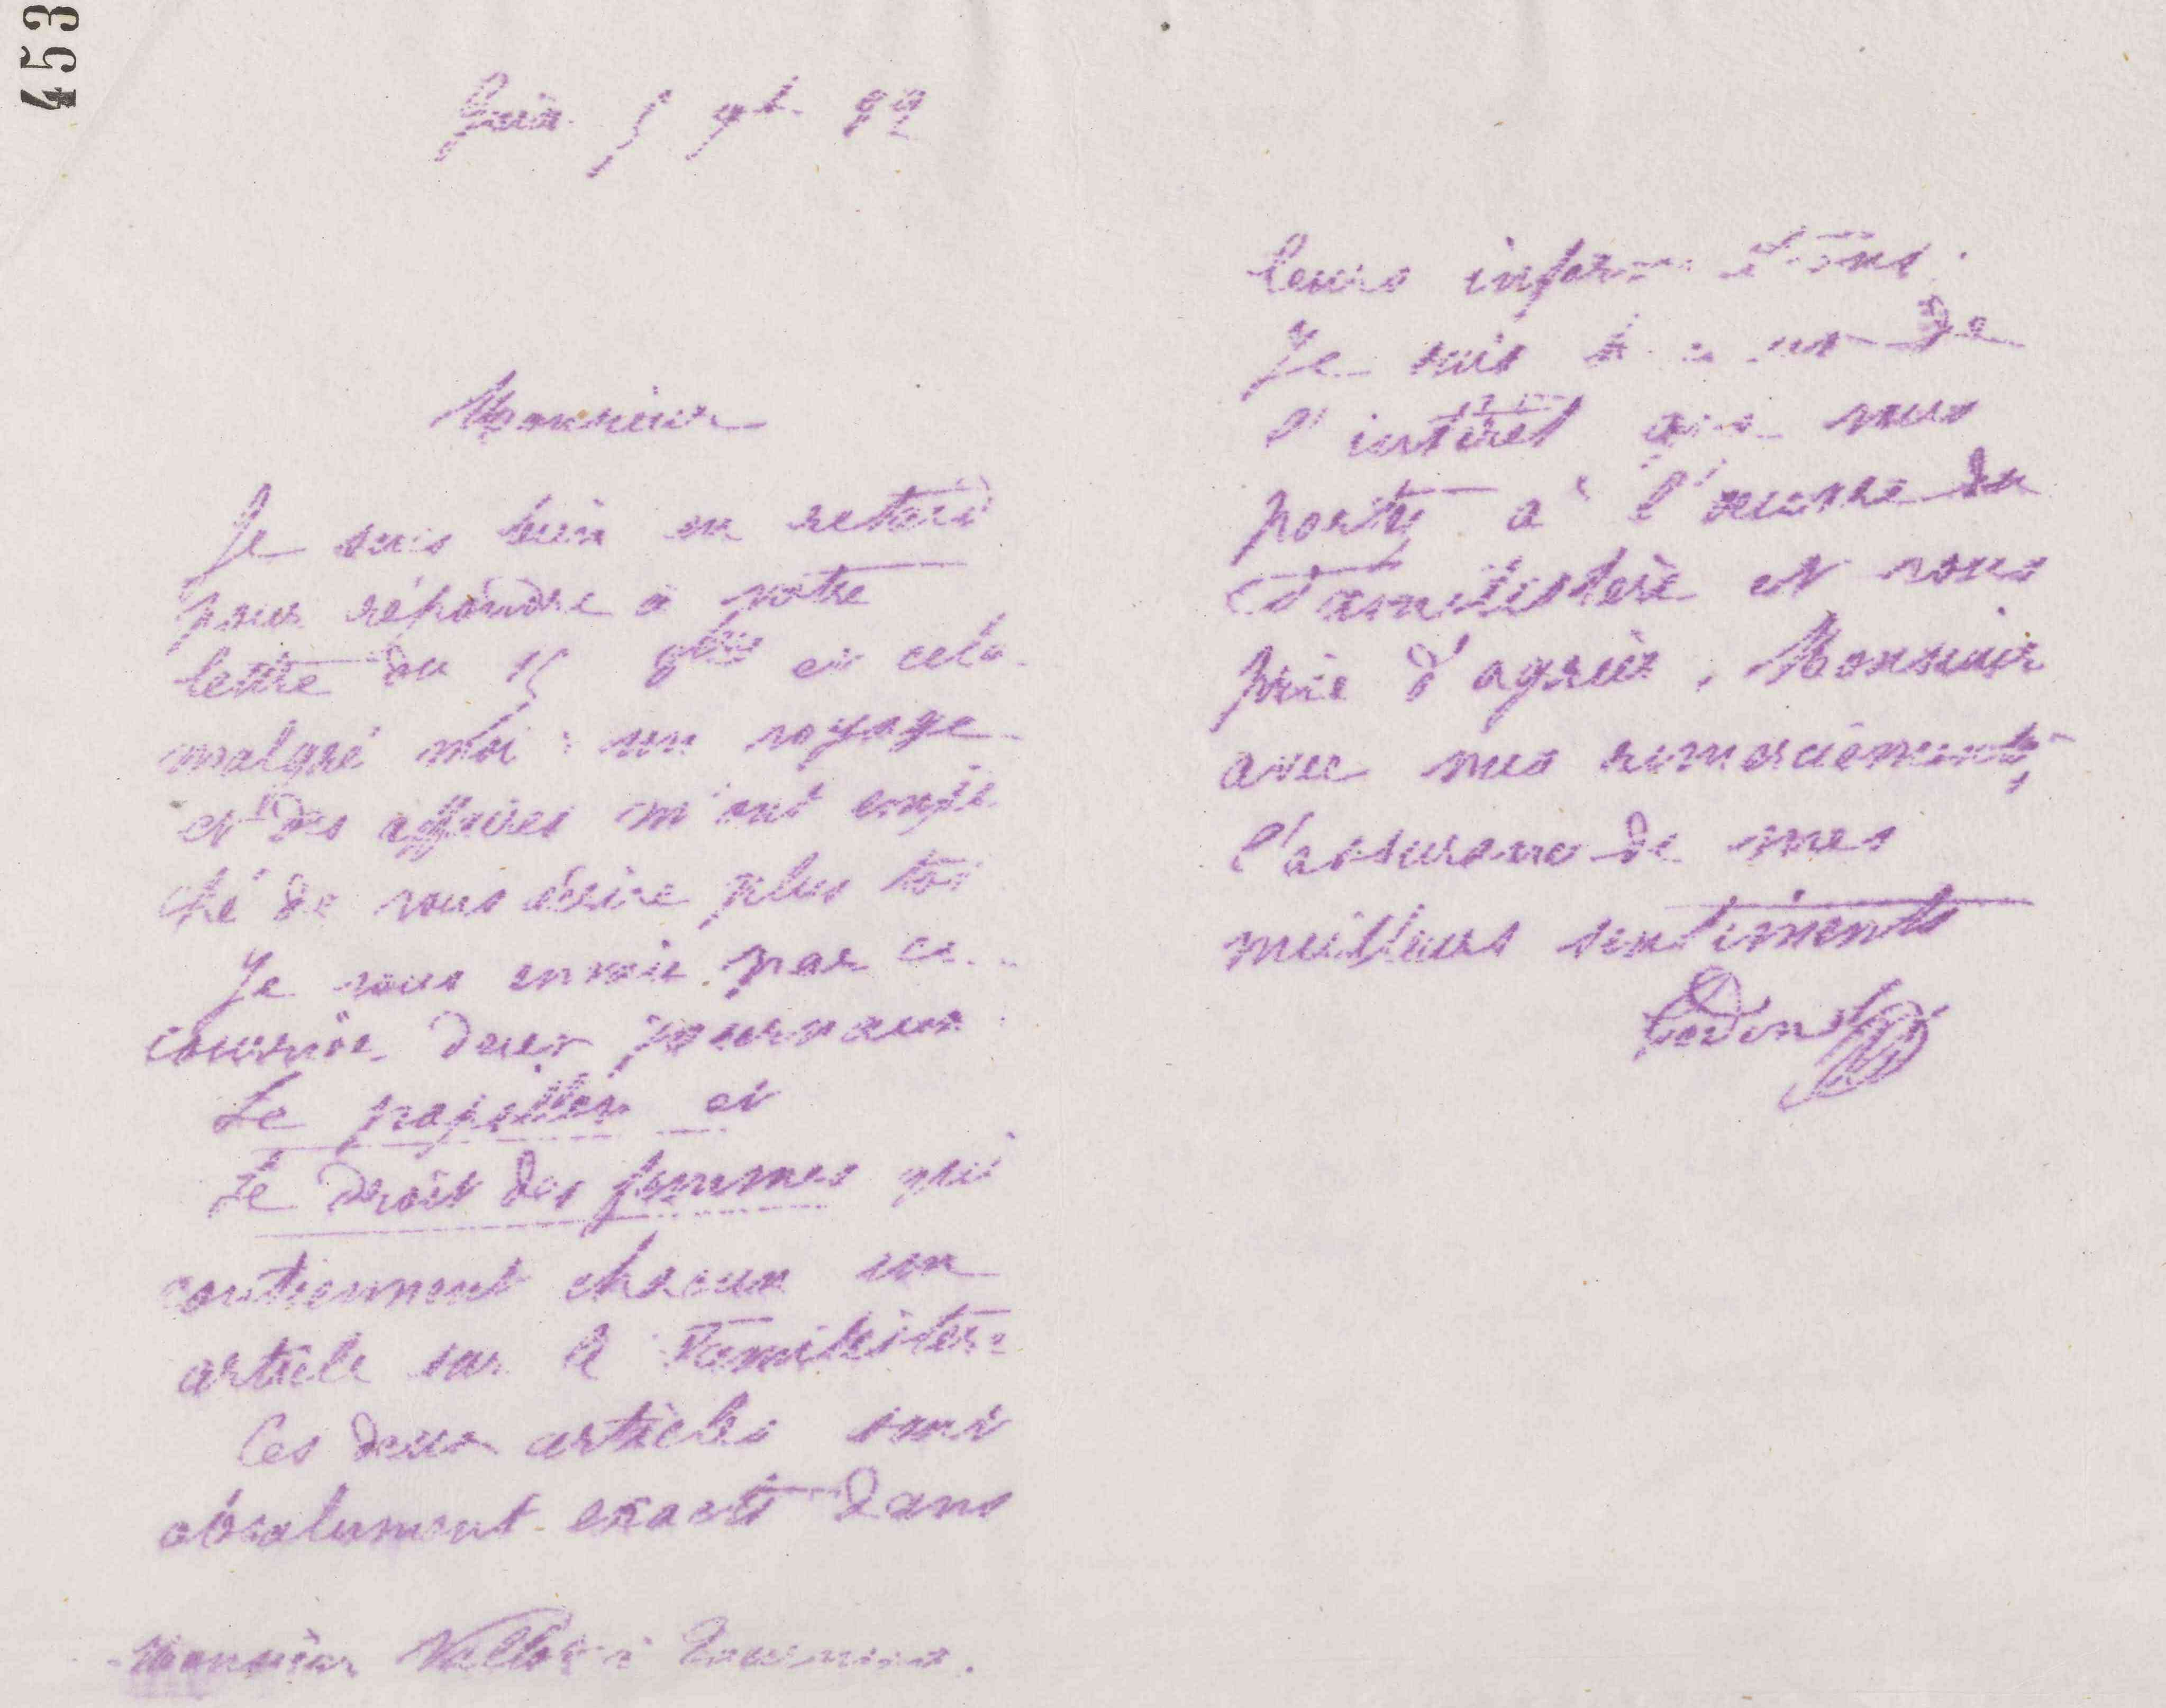 453
Guise 5 9bre 82
Monsieur
Je suis bien en retard
pour répondre à votre
lettre du 15 9bre et cela
malgré moi : un voyage
et des affaires m'ont empê
ché de vous écrire plus tôt
Je vous envoie par ce
courrier deux journaux
Le papillon et
Le Droit des femmes qui
contiennent chacun un
article sur le Familistère
Ces deux articles sont
absolument exacts dans
Monsieur à
leurs informations.
Je suis de
l'intérêt que vous
portez à l'œuvre du
Familistère et vous
prie d'agréer, Monsieur
avec mes remerciements,
l'assurance de mes
meilleurs sentiments
Godin